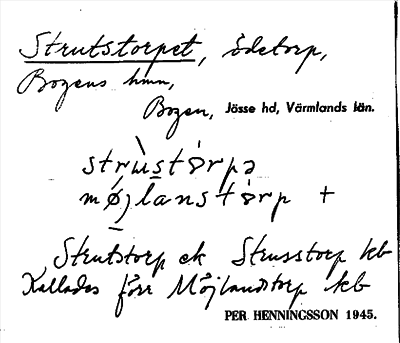 Strutstorpet, ödetorp,
Bogens hmn,
Bogen, Jösse hd, Värmlands län.
strùstòrpə
møjlanstòrp +
Strutstorp ek Strusstorp kb
Kallades förr Möjlandstorp kb
PER HENNINGSSON 1945.